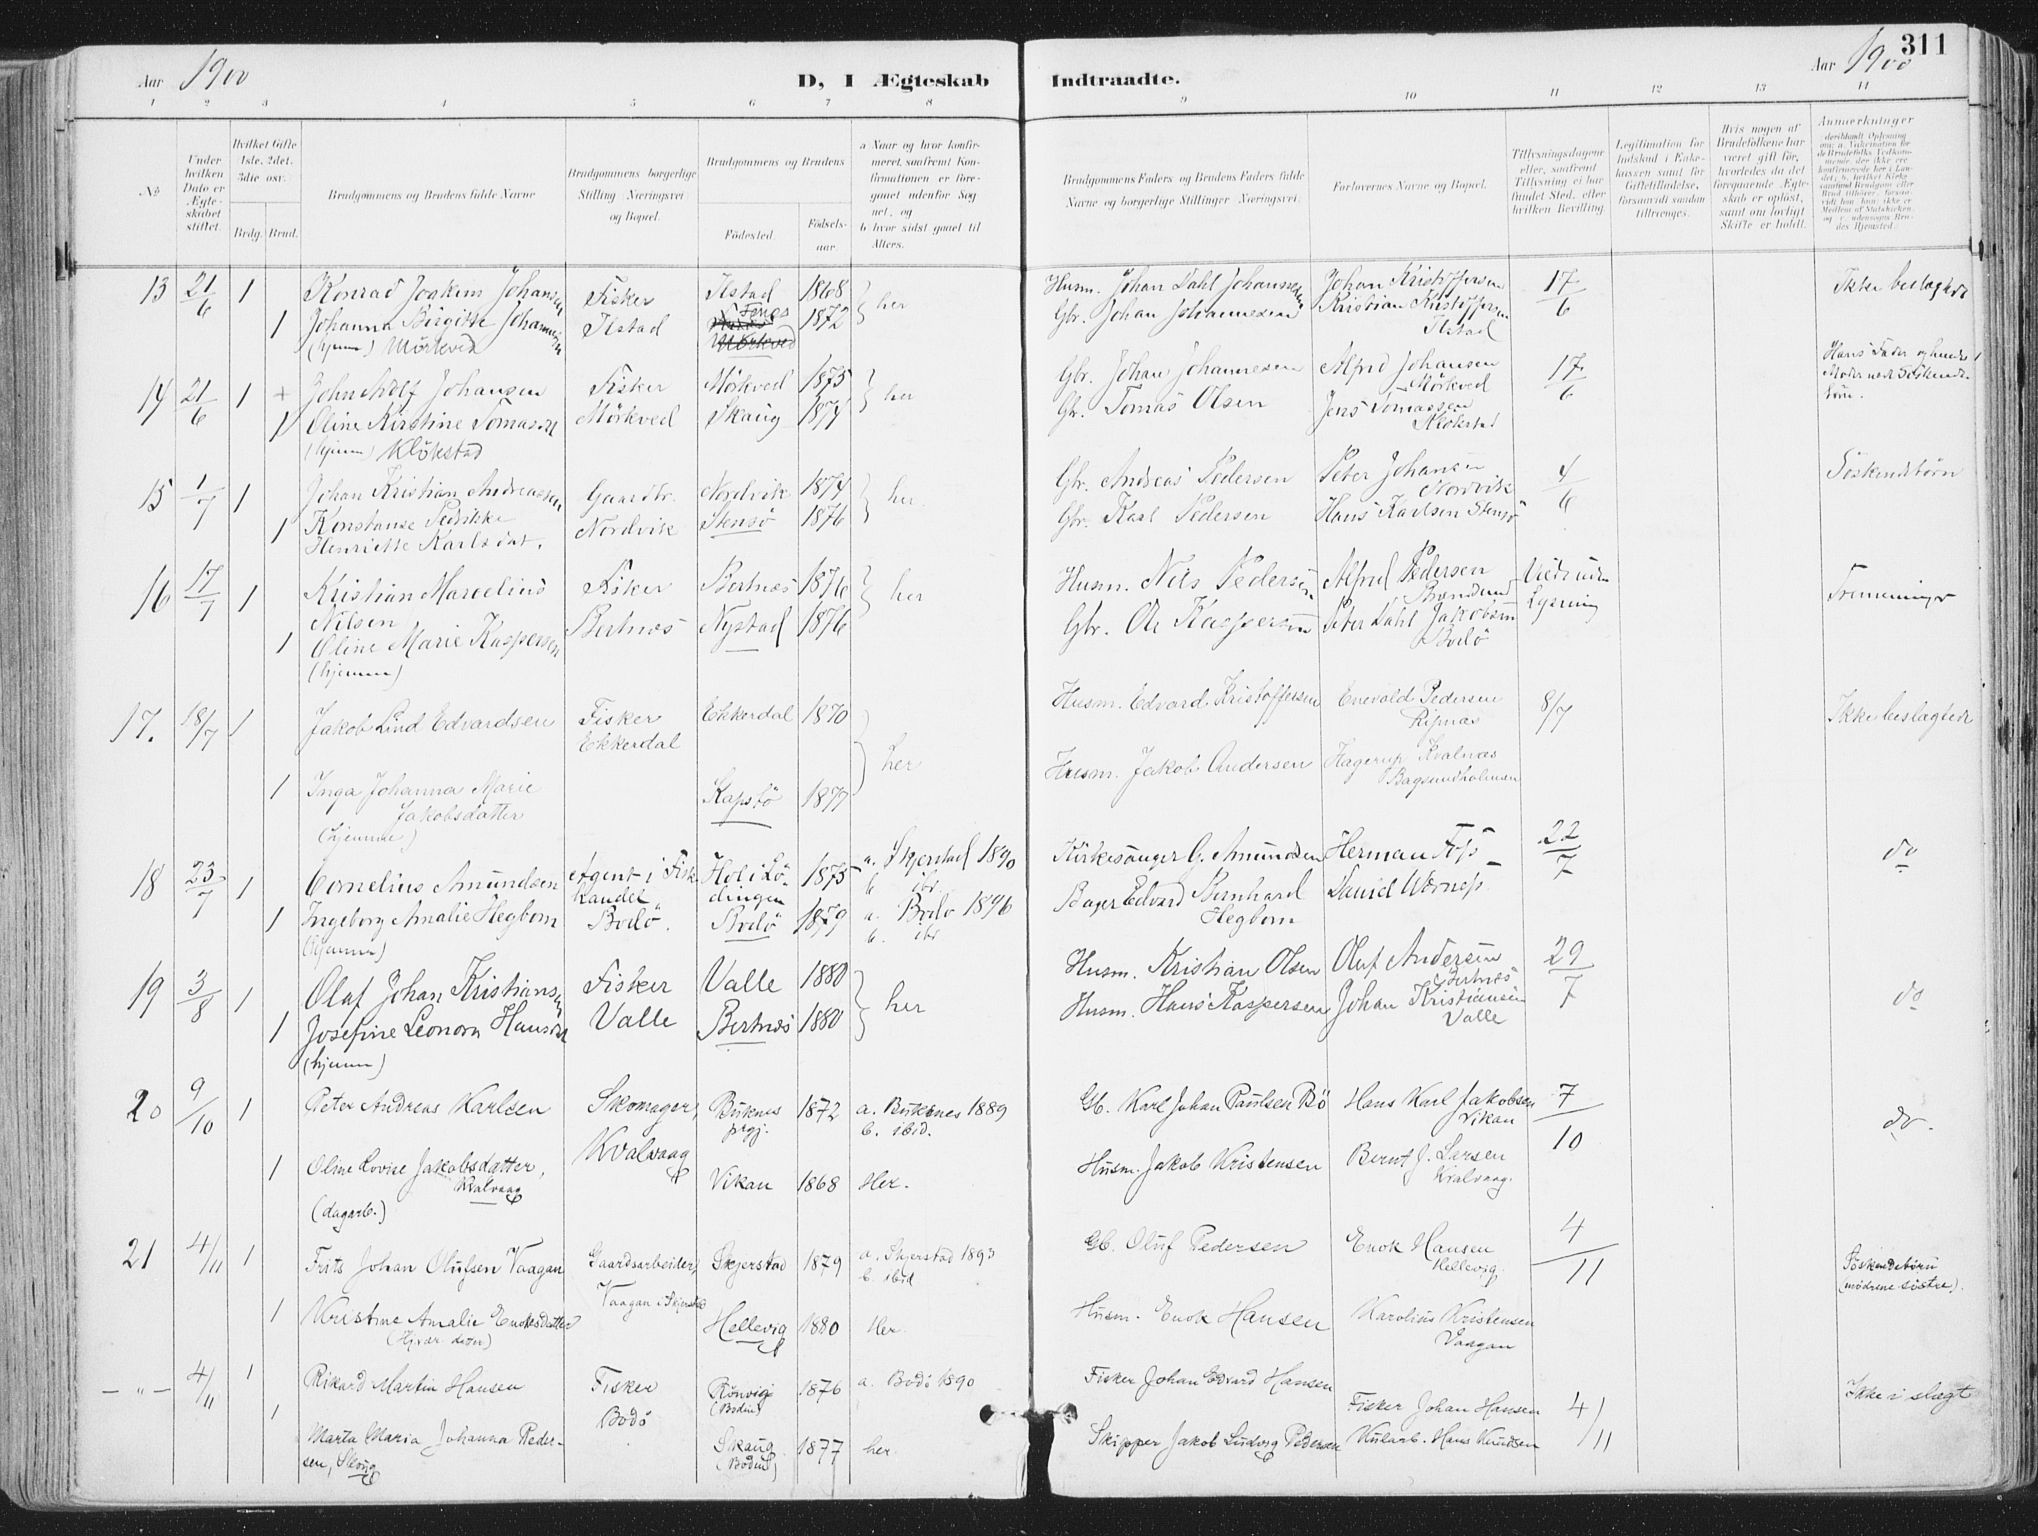 311
Aar 1900
D, I Ægteskab Indtraadte.
Aar 1900
1 2 3 4 5 6 7 8 9 10 11 12 13 14
No
Under hvilken Dato er Ægteskabet stiftet.
Hvilket Gifte 1ste, 2det, 3die osv.
Brdg. Brud.
Brudgommens og Brudens fulde Navne
Brudgommens borgerlige Stilling Næringsvei og Bopæl.
Brudgommens og Brudens
Fødested.
Fødselsaar.
a Naar og hvor konfirmeret, saafremt Konfirmationen er foregaaet udenfor Sognet, og
b hvor sidst gaaet til Alters.
Brudgommens Faders og Brudens Faders fulde Navne og borgerlige Stillinger Næringsvei.
Forlovernes Navne og Bopæl.
Tillysningsdagene eller, saafremt Tillysning ei har fundet Sted, efter hvilken Bevilling
Legitimation for Indskud i Enkekassen samt for Giftetilladelse, forsaavidt saadan tiltrænges.
Hvis nogen af Brudefolkene har været gift før, hvorledes da det foregaaende Ægteskab er opløst, samt om lovligt Skifte er holdt.
Anmærkninger
13 21/6 1 Konrad Joakim Johansen Fisker Ilstad 1868 her Husm. Johan Dahl Johannesen Johan Kristoffersen 17/6 Ikke beslægtede
1 Johanna Birgitte Johannesen Ilstad Fenes 1872 Gbr. Johan Johannesen Kristian Kristoffersen
(hjemme) Mörkved Mörkved Ilstad
14 21/6 1 John Adolf Johansen Fisker Mörkved 1875 her Gbr. Johan Johannesen Alfred Johansen 17/6 Hans Fader og hendes
Mörkved Moder
1 Oline Kirstine Tomasdt Mörkved Skaug 1874 Gbr. Tomas Olsen Jens Tomassen
(hjemme) Klökstad Klökstad
15 1/7 1 Johan Kristian Andreassen Gaardbr. Nordvik 1874 her. Gbr. Andreas Pedersen Peter Johansen 4/6 Söskendebörn
Nordvik
1 Konstanse Fredrikke Nordvik Stensö 1876 Gbr. Karl Pedersen Hans Karlsen Stensö
Henriette Karlsdat.
16 17/7 1 Kristian Marcelius Fisker Bertnæs 1876 her Husm. Nils Pedersen Alfred Pedersen Viede uden Tremeninger
Nilsen Lysning
1 Oline Marie Kaspersen Bertnæs Nystad 1876 Gbr. Ole Kaspersen Peter Dahl Jakobsen
(hjemme) Bodö
17. 18/7 1 Jakob Lind Edvardsen Fisker Ekkerdal 1870 her Husm. Edvard Kristoffersen Enevald Pedersen 8/7 Ikke beslægtede
Ekkerdal Ripnæs
1 Inga Johanna Marie Kapstö 1877 Husm. Jakob Andersen Hagerup Kvalnæs
Jakobsdatter Bagsundholmen
(hjemme)
18 23/7 1 Cornelius Amundsen Agent i Fisk Hol i Lö- 1875 a. Skjerstad 1890 Kirkesanger G. Amundsen Herman 22/7 do
handel dingen b. ibr.
1 Ingeborg Amalie Hegbom Bodö. Bodö 1879 a. Bodö 1896 Bager Edvard Bernhard David
(hjemme) b. ibr. Hegbom
19 3/8 1 Olaf Johan Kristiansen Fisker Valle 1880 her Husm. Kristian Olsen Oluf Andersen 29/7 do
Bertnæs
1 Josefine Leonora Hansdt Valle Bertnæs 1880 Husm. Hans Kaspersen Johan Kristiansen
(hjemme) Valle
20 9/10 1 Peter Andreas Karlsen Skomager, Buknes 1872 a. Buksnes 1889 Gb. Karl Johan Paulsen Bö Hans Karl Jakobsen 7/10 do.
prgj. b. ibid. Vikan
1 Oline Lovise Jakobsdatter, Kvalvaag Vikan 1868 Her. Husm. Jakob Kristensen Bernt J. Larsen
Kvalvaag Kvalvaag.
(dagarb.)
21 4/11 1 Frits Johan Olufsen Vaagan Gaardsarbeider, Skjerstad 1879 a. Skjerstad 1893 Gb. Oluf Pedersen Enok Hansen 4/11 Söskendebörn
Vaagan i Skjerstad b. ibid Hellevig. (mödrene söstre).
1 Kristine Amalie Enoksdatter Hellevig 1880 Her. Husm. Enok Hansen Karolius Kristensen
Vaagan
— „ — 4/11 1 Rikard Martin Hansen Fisker Rönvig 1876 a. Bodö 1890 Fisker Johan Edvard Hansen Fisker Johan Hansen 4/11 Ikke i slægt
Bodö (Bodin)
1 Marta Maria Johanna Peder- Skaug 1877 her. Skipper Jakob Ludvig Pedersen Kularb. Hans Knudsen
sen, Skaug (Bodin)